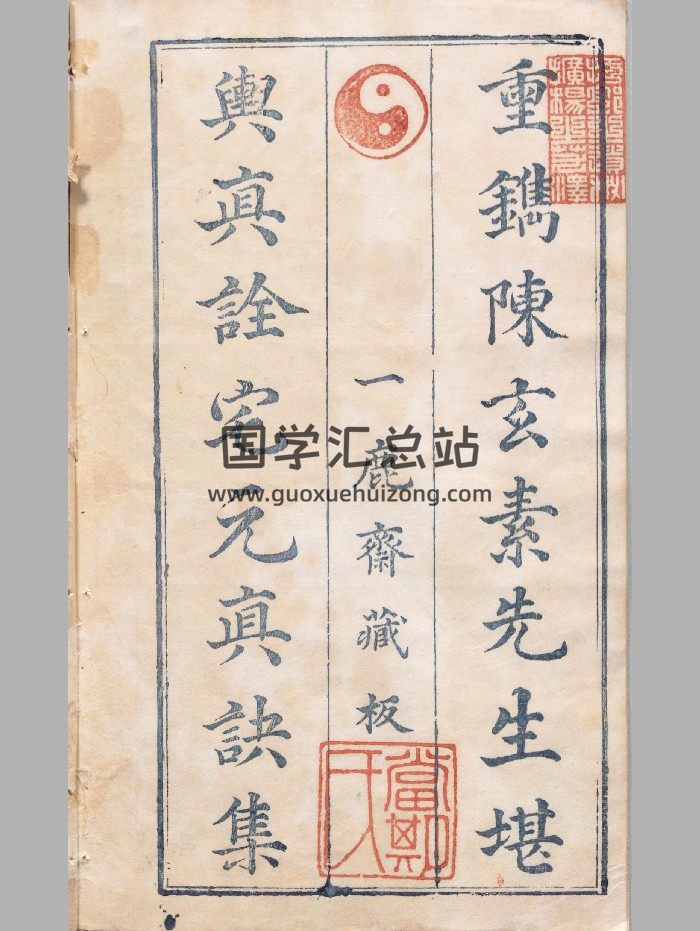 重鐫陳玄素先生堪
一鹿齋藏板
輿眞詮宅元眞訣集
国学汇总站
www.guoxuehuizong.com